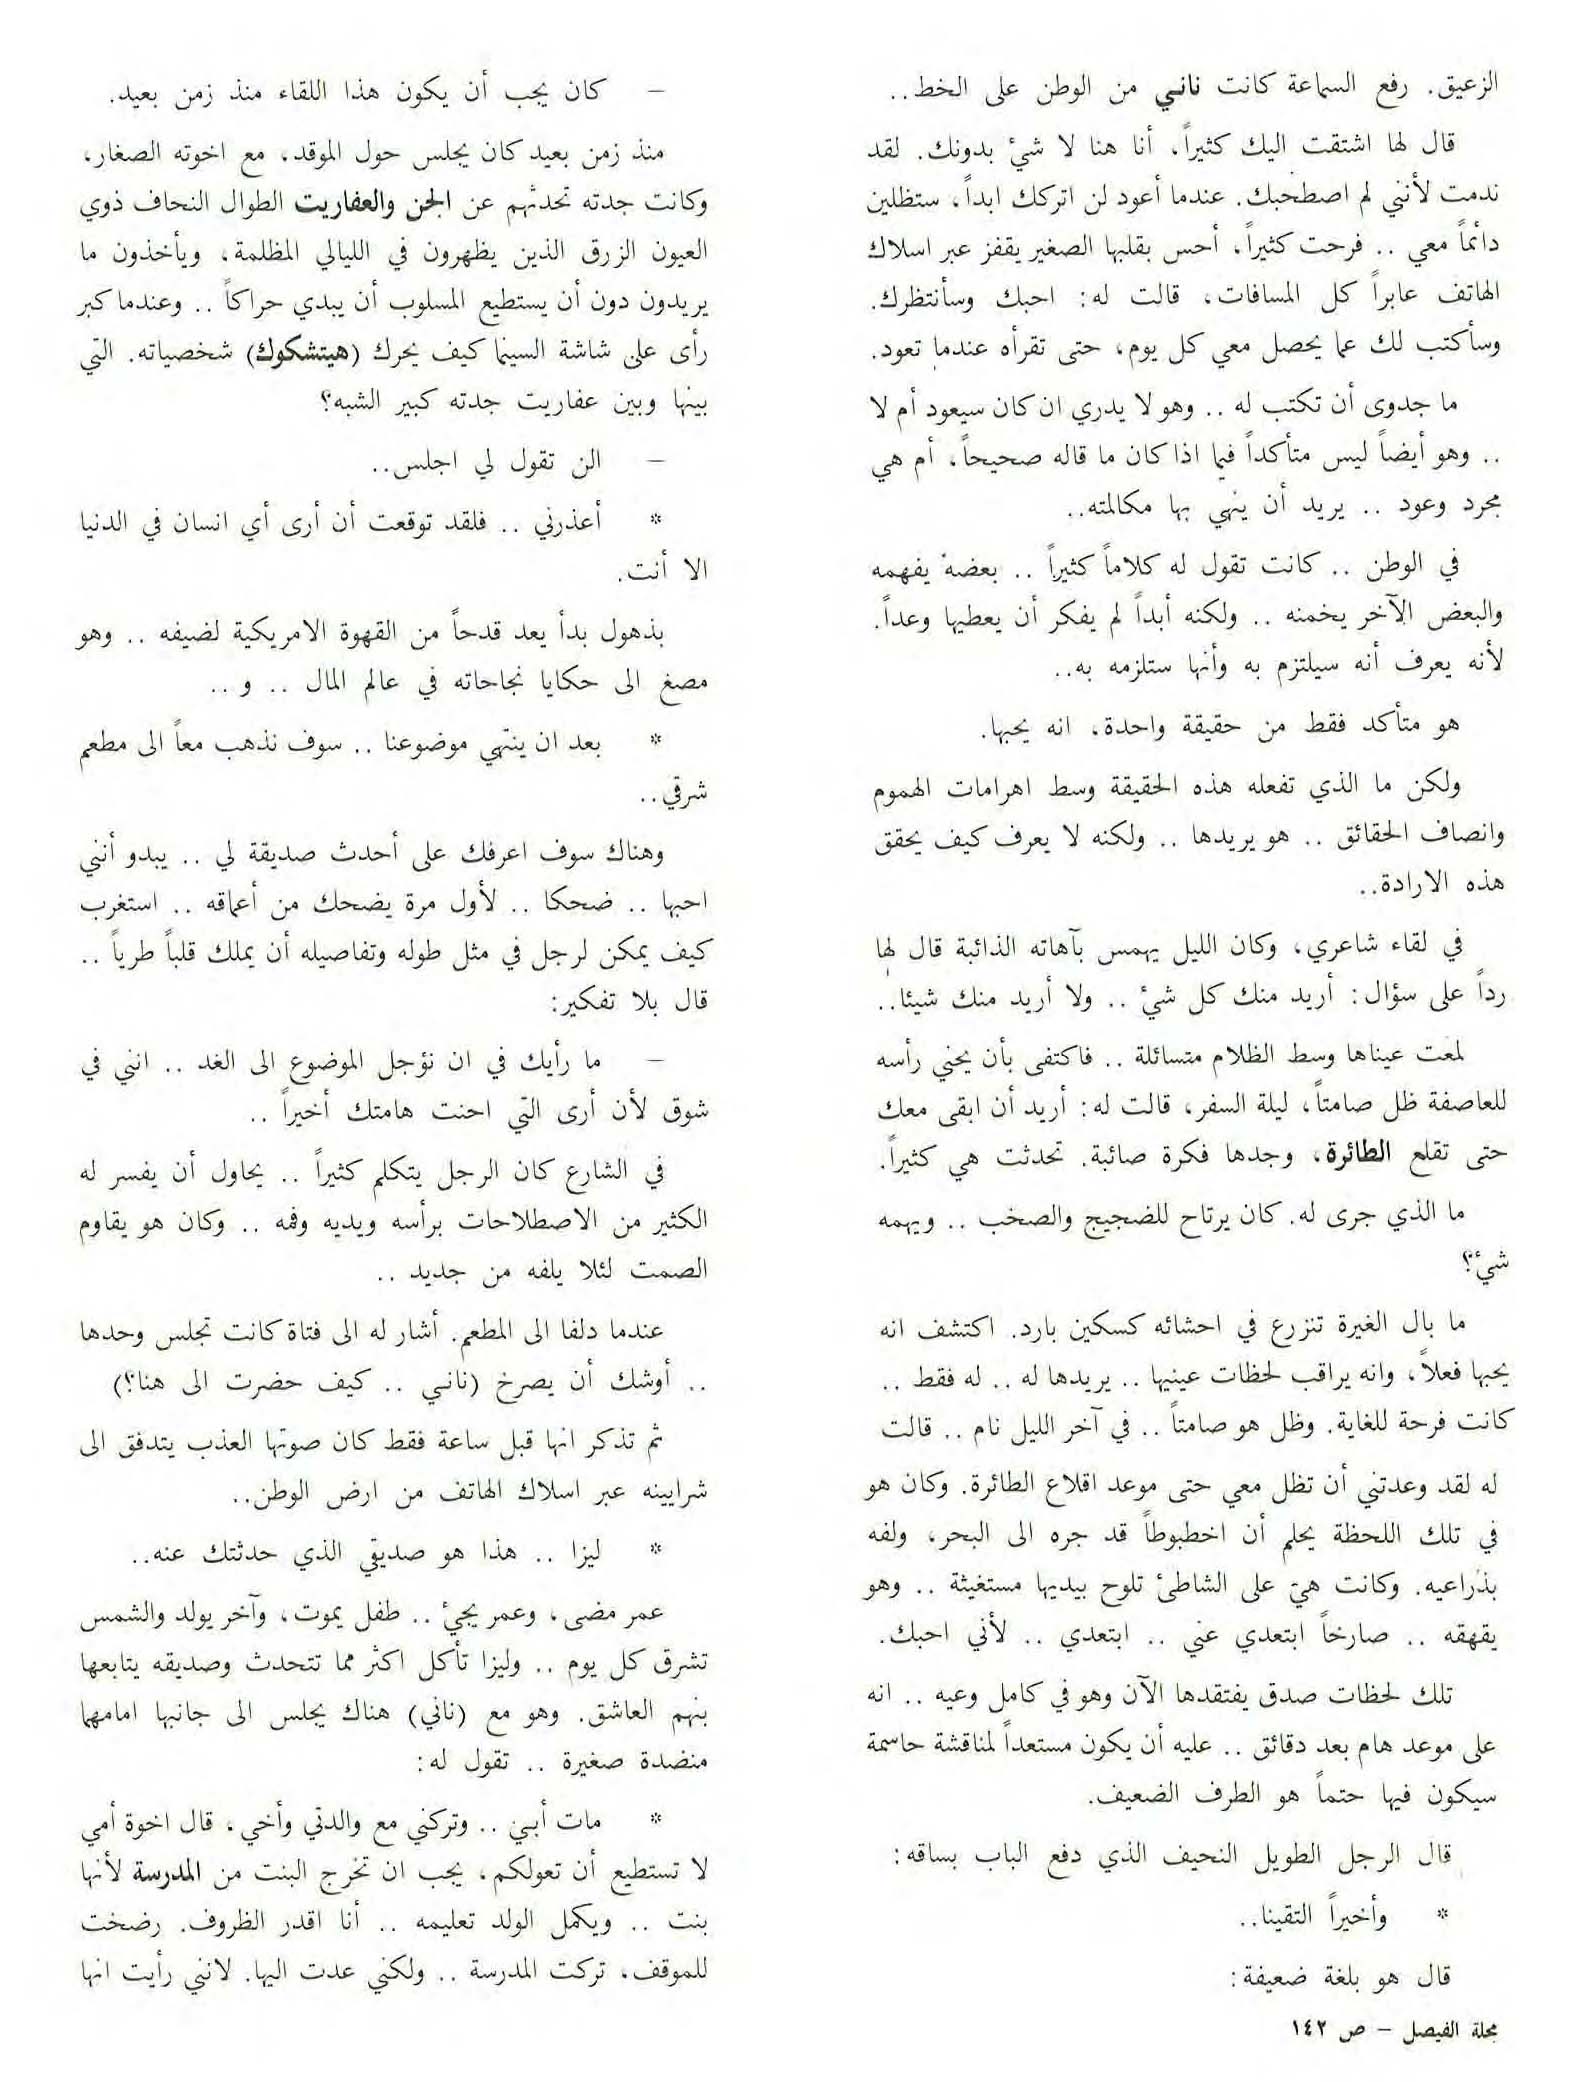 الزعيق. رفع السماعة كانت ناني من الوطن على الخط..
قال لها اشتقت اليك كثيراً، أنا هنا لا شيء بدونك. لقد
ندمت لأنني لم اصطحبك. عندما أعود لن اتركك ابداً، ستظلين
دائماً معي .. فرحت كثيراً، أحس بقلبها الصغير يقفز عبر اسلاك
الهاتف عابراً كل المسافات، قالت له: احبك وسأنتظرك.
وسأكتب لك عما يحصل معي كل يوم، حتى تقرأه عندما تعود.
ما جدوى أن تكتب له .. وهو لا يدري ان كان سيعود أم لا
.. وهو أيضاً ليس متأكداً فيما اذا كان ما قاله صحيحاً، أم هي
مجرد وعود .. يريد أن ينهي بها مكالمته..
في الوطن .. كانت تقول له كلاماً كثيراً .. بعضه يفهمه
والبعض الآخر يخمنه .. ولكنه أبداً لم يفكر أن يعطيها وعداً.
لأنه يعرف أنه سيلتزم به وأنها ستلزمه به..
هو متأكد فقط من حقيقة واحدة، انه يحبها.
ولكن ما الذي تفعله هذه الحقيقة وسط اهرامات الهموم
وانصاف الحقائق .. هو يريدها .. ولكنه لا يعرف كيف يحقق
هذه الارادة..
في لقاء شاعري، وكان الليل يهمس بآهاته الذائبة قال لها
رداً على سؤال: أريد منك كل شيء .. ولا أريد منك شيئا..
لمعت عيناها وسط الظلام متسائلة .. فاكتفى بأن يحني رأسه
للعاصفة ظل صامتاً، ليلة السفر، قالت له: أريد أن ابقى معك
حتى تقلع الطائرة، وجدها فكرة صائبة. تحدثت هي كثيراً.
ما الذي جرى له. كان يرتاح للضجيج والصخب .. ويهمه
شيء؟
ما بال الغيرة تنزرع في احشائه كسكين بارد. اكتشف انه
يحبها فعلاً، وانه يراقب لحظات عينيها .. يريدها له .. له فقط ..
كانت فرحة للغاية. وظل هو صامتاً .. في آخر الليل نام .. قالت
له لقد وعدتني أن تظل معي حتى موعد اقلاع الطائرة. وكان هو
في تلك اللحظة يحلم أن اخطبوطاً قد جره الى البحر، ولفه
بذراعيه. وكانت هي على الشاطئ تلوح بيديها مستغيثة .. وهو
يقهقه .. صارخاً ابتعدي عني .. ابتعدي .. لأني احبك.
تلك لحظات صدق يفتقدها الآن وهو في كامل وعيه .. انه
على موعد هام بعد دقائق .. عليه أن يكون مستعداً لمناقشة حاسمة
سيكون فيها حتماً هو الطرف الضعيف.
قال الرجل الطويل النحيف الذي دفع الباب بساقه:
* وأخيراً التقينا..
قال هو بلغة ضعيفة:
– كان يجب أن يكون هذا اللقاء منذ زمن بعيد.
منذ زمن بعيد كان يجلس حول الموقد، مع اخوته الصغار،
وكانت جدته تحدثهم عن الجن والعفاريت الطوال النحاف ذوي
العيون الزرق الذين يظهرون في الليالي المظلمة، ويأخذون ما
يريدون دون أن يستطيع المسلوب أن يبدي حراكاً .. وعندما كبر
رأى على شاشة السينما كيف يحرك (هيتشكوك) شخصياته. التي
بينها وبين عفاريت جدته كبير الشبه؟
– الن تقول لي اجلس..
* أعذرني .. فلقد توقعت أن أرى أي انسان في الدنيا
الا أنت.
بذهول بدأ يعد قدحاً من القهوة الامريكية لضيفه .. وهو
مصغ الى حكايا نجاحاته في عالم المال .. و ..
* بعد ان ينتهي موضوعنا .. سوف نذهب معاً الى مطعم
شرقي..
وهناك سوف اعرفك على أحدث صديقة لي .. يبدو أنني
احبها .. ضحكا .. لأول مرة يضحك من أعماقه .. استغرب
كيف يمكن لرجل في مثل طوله وتفاصيله أن يملك قلباً طرياً ..
قال بلا تفكير:
– ما رأيك في ان نؤجل الموضوع الى الغد .. انني في
شوق لأن أرى التي احنت هامتك أخيراً ..
في الشارع كان الرجل يتكلم كثيراً .. يحاول أن يفسر له
الكثير من الاصطلاحات برأسه ويديه وفمه .. وكان هو يقاوم
الصمت لئلا يلفه من جديد ..
عندما دلفا الى المطعم. أشار له الى فتاة كانت تجلس وحدها
.. أوشك أن يصرخ (ناني .. كيف حضرت الى هنا؟)
ثم تذكر انها قبل ساعة فقط كان صوتها العذب يتدفق الى
شرايينه عبر اسلاك الهاتف من ارض الوطن..
* ليزا .. هذا هو صديقي الذي حدثتك عنه..
عمر مضى، وعمر يجيء .. طفل يموت، وآخر يولد والشمس
تشرق كل يوم .. وليزا تأكل اكثر مما تتحدث وصديقه يتابعها
بنهم العاشق. وهو مع (ناني) هناك يجلس الى جانبها امامهما
منضدة صغيرة .. تقول له:
* مات أبي .. وتركني مع والدتي وأخي، قال اخوة أمي
لا تستطيع أن تعولكم، يجب ان تخرج البنت من المدرسة لأنها
بنت .. ويكمل الولد تعليمه .. أنا اقدر الظروف. رضخت
للموقف، تركت المدرسة .. ولكني عدت اليها. لانني رأيت انها
مجلة الفيصل – ص ١٤٢